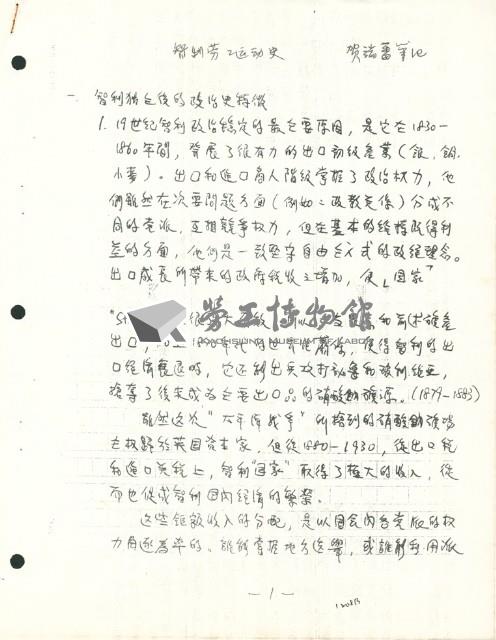 智利劳工运动史 贺端蕃筆记
一、智利独立後的政治史特徵
1. 19世紀智利政治穩定的最主要原因，是它在1830-
1860年間，發展了很有力的出口初級產業（銀、銅、
小麥）。出口和進口商人階級掌握了政治权力，他
們雖然在次要問題方面（例如：政教关係）分成不
同的党派，互相競爭权力，但在基本的經濟政得利
益的方面，他們是一致堅守自由主义式的政經理念。
出口成長所帶來的政府稅收之增加，使「国家」
勞工博物館
KAOHSIUNG MUSEUM OF LABOR
出口，年代世，使得智利的出
口經濟衰退時，它还制出兵攻打祕魯和玻利維亞，
搶奪了後来成為主要出口品的硝酸鹽礦源。(1879-1883)
雖然这次"太平洋战爭"所搶到的硝酸鹽礦場
主权歸於英国資本家，但從1880-1930，從出口稅
和進口关税上，智利"国家"取得了極大的收入，從
而也促成智利国內經濟的繁榮。
这些鉅額收入的分配，是以国会內各党派的权
力角逐為準的。誰能掌握地方选舉，或誰能利用派
-1-
120813